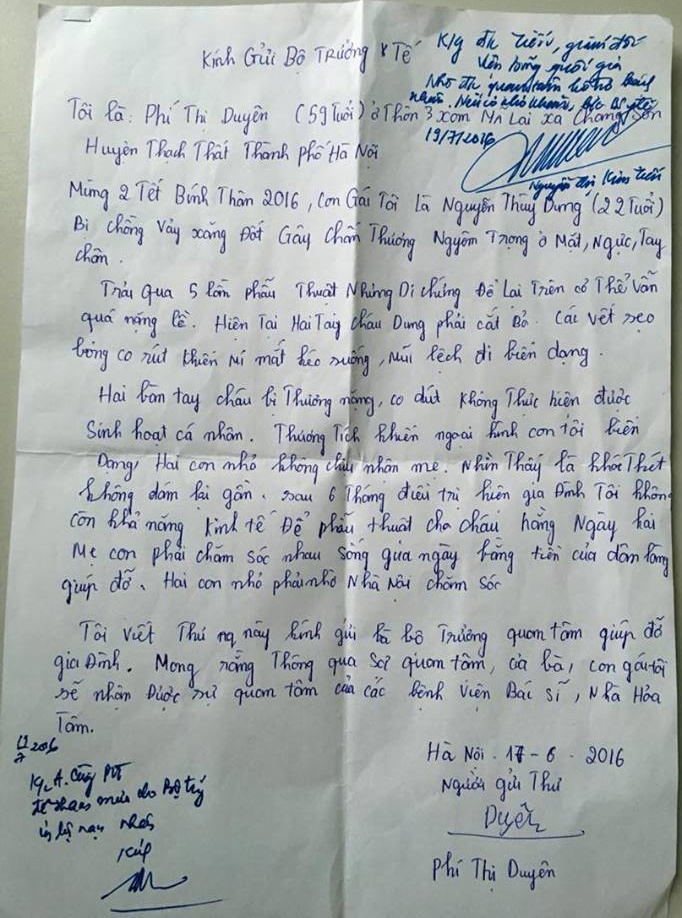 Kính Gửi Bộ Trưởng Y Tế
K/g đ/c Tiến, giám đốc
Viện bỏng quốc gia
Nhờ đ/c quan tâm hỗ trợ bệnh
nhân. Nếu có khó khăn, b/c
19/7/2016
Nguyễn Thị Kim Tiến
Tôi là: Phí Thị Duyên (59 Tuổi) ở Thôn 3 xóm Mĩ Lai xã Chàng Sơn
Huyện Thạch Thất Thành phố Hà Nội
Mùng 2 Tết Bính Thân 2016, con Gái Tôi Là Nguyễn Thùy Dung (22 Tuổi)
Bị chồng vảy xăng Đốt Gây chấn Thương Nghiêm Trọng ở Mặt, Ngực, Tay
chân.
Trải Qua 5 lần phẫu Thuật Những Di chứng Để Lại Trên cơ Thể vẫn
quá nặng lề. Hiện Tại Hai Tai cháu Dung phải cắt Bỏ. Các vết sẹo
bỏng co rút khiến mí mắt kéo xuống, mũi lệch đi biến dạng.
Hai bàn tay cháu bị Thương nặng, co dút không Thực hiện được
Sinh hoạt cá nhân. Thương Tích khiến ngoại hình con tôi biến
Dạng, Hai con nhỏ không chịu nhân mẹ. Nhìn Thấy là khóc Thét
không dám lại gần. sau 6 Tháng điều trị hiện gia Đình Tôi không
còn khả năng kinh tế Để phẫu thuật cho cháu hằng Ngày hai
Mẹ con phải chăm sóc nhau sống qua ngày bằng tiền của dân làng
giúp đỡ. Hai con nhỏ phải nhờ Nhà Nội chăm sóc
Tôi viết Thư này kính gửi bà bộ Trưởng quan tâm giúp đỡ
gia Đình. Mong rằng Thông qua Sự quan tâm, của bà, con gái tôi
sẽ nhận Được sự quan tâm của các bệnh viện Bác sĩ, Nhà Hỏa
Tâm.
Hà Nội 17 - 6 - 2016
Người gửi Thư
Duyên
Phí Thị Duyên
2016